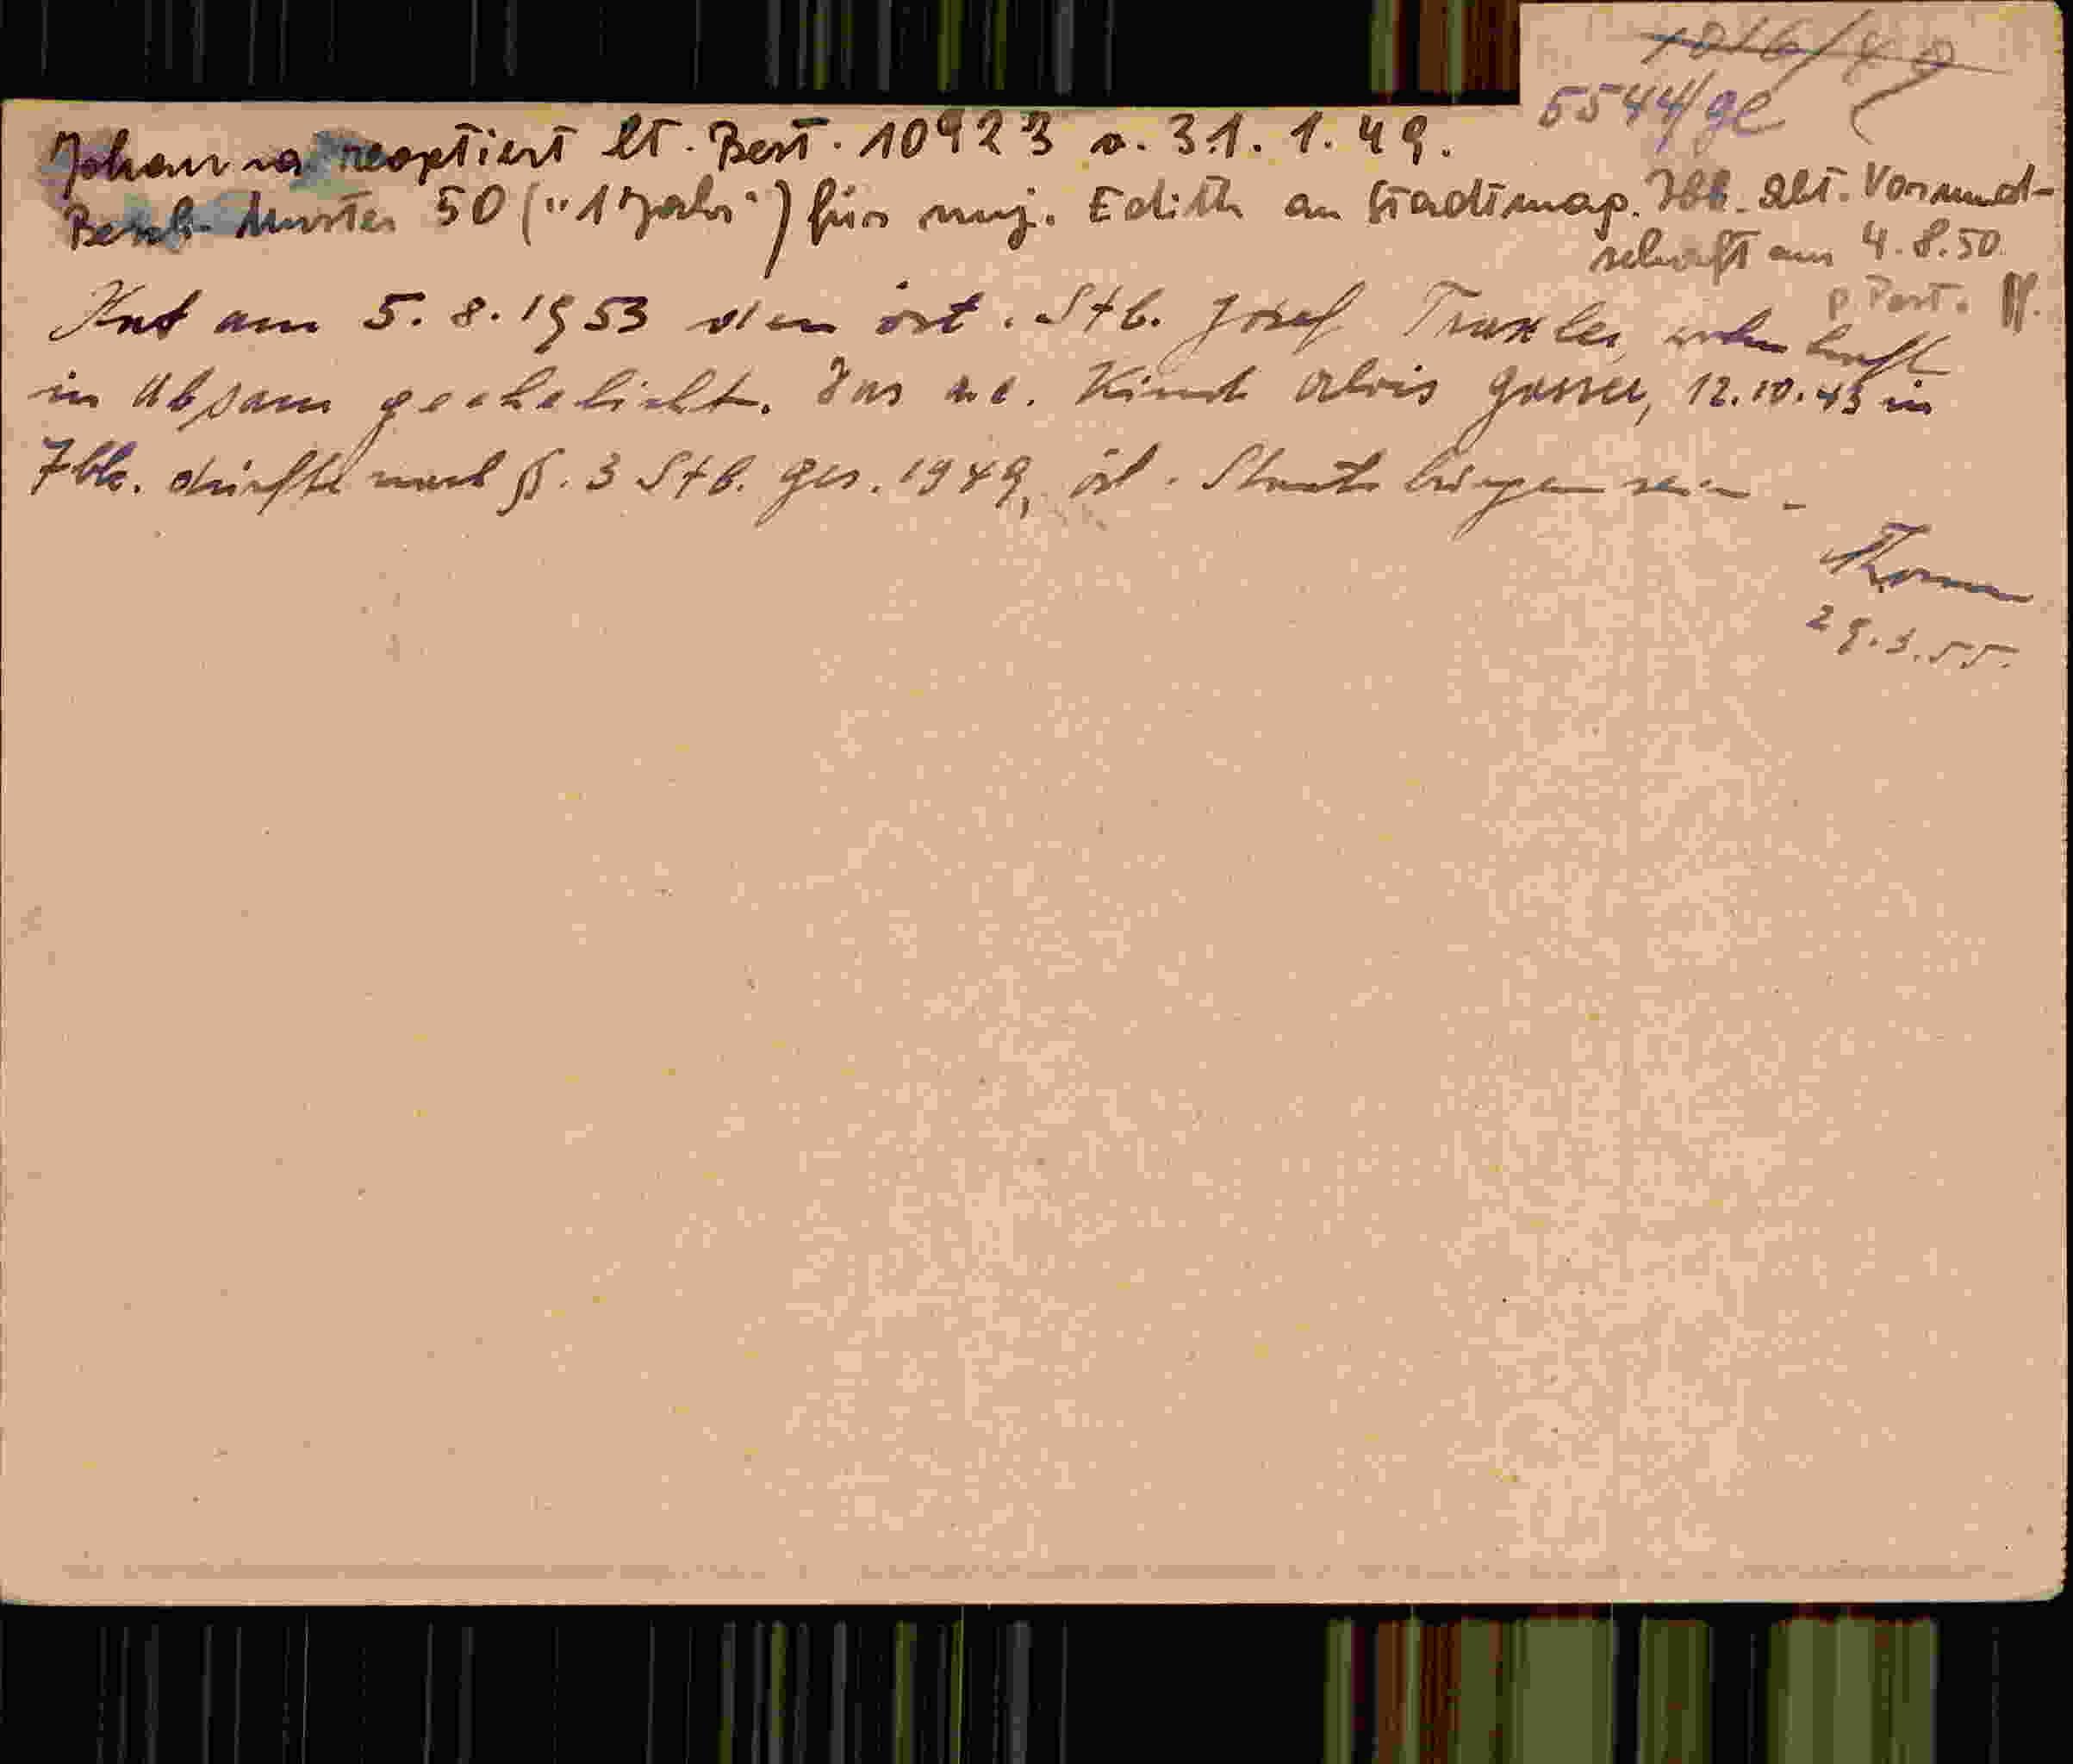 1016/49
5544/ge
Johanna reoptiert lt. Best. 10923 v. 31. 1. 49.
Besch. Muster 50 ("1 Jahr") für mj. Edith an Stadtmag. Ibk. Abt. Vormund-
schaft am 4.8.50
p Post.
Hat am 5. 8. 1953 den öst. Stb. Josef Traxler, wohnhaft
in Absam geehelicht. Das u.e. Kind Alois Gasser, 12.10.43 in
Ibk. dürfte nach §. 3 Stb. Ges. 1949, öst. Staatsbürger sein.
Thoma
29.3.55.